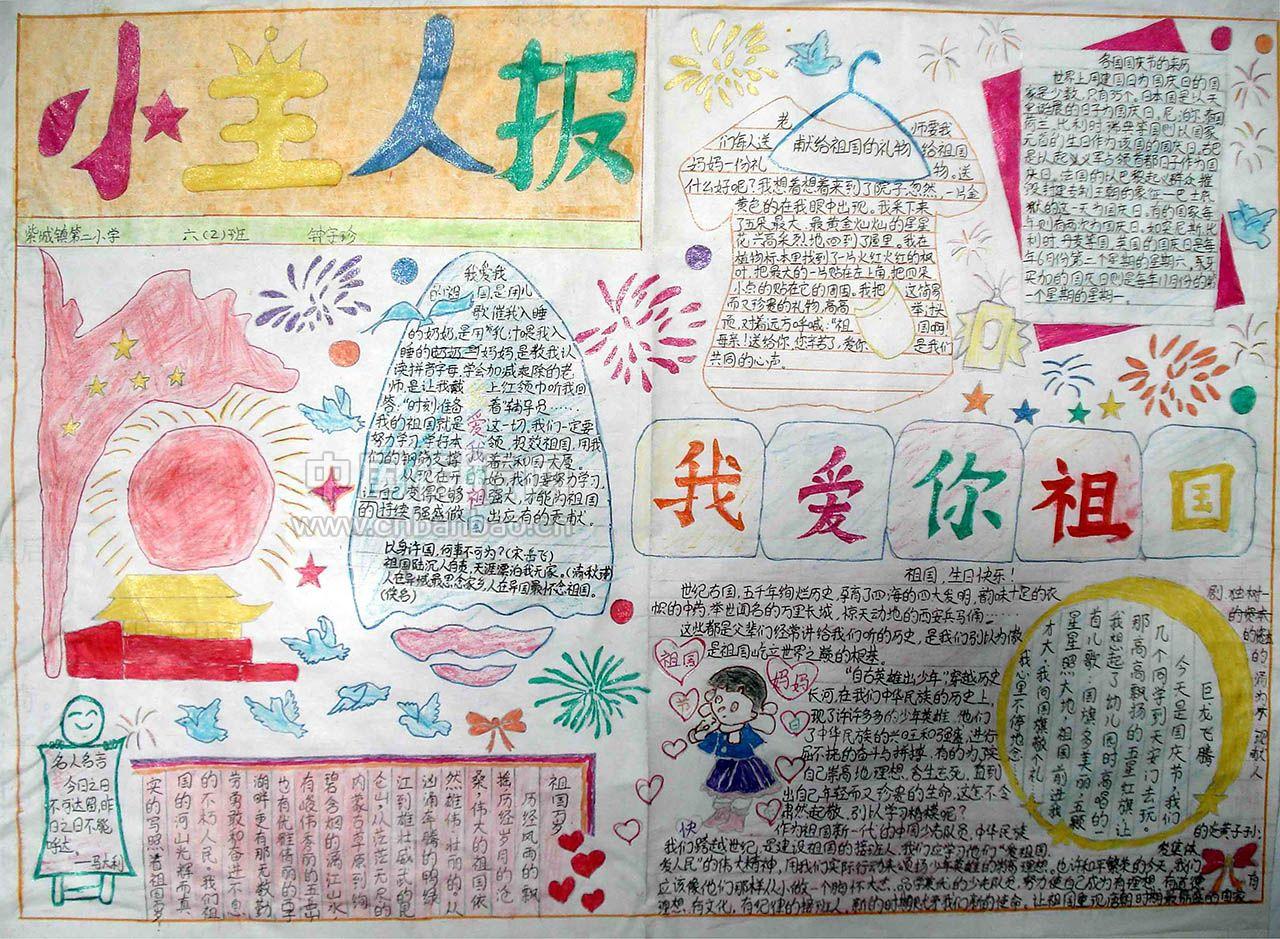 小主人报
紫城镇第二小学 六(2)班 钟宇珍
我爱我
的祖国,是用儿
歌催我入睡
的奶奶,是用乳汁喂我入
睡的妈妈,是教我认
读拼音字母,学会加减乘除的老
师,是让我戴上红领巾听我回
答:“时刻准备着”辅导员……
我的祖国就是这一切,我们一定要
努力学习,学好本领,报效祖国,用我
们的钢筋支撑着共和国大厦。
从现在开始,我们要努力学习,
让自己变得足够强大,才能为祖国
的持续强盛做出应有的贡献。
爱我的祖国
以身许国,何事不可为?(宋岳飞)
祖国陆沉人有责,天涯漂泊我无家。(清秋瑾)
人在异域最思念家乡人在异国最怀念祖国。
(佚名)
中国板报网
www.cnbanbao.cn
名人名言
今日之日
不可达留,昨
日之日不能
呼达。
——马大利
祖国万岁
历经风雨的飘
摇,历经岁月的沧
桑,伟大的祖国依
然雄伟,壮丽的,从
汹涌奔腾的鸭绿
江到雄壮威武的昆
仑山,从茫茫无尽的
内蒙古草原到绚
碧含烟的漓江山水
有峻伟季丽的玉
也有优雅倩丽的西子
湖畔,更有那无数勤
劳勇敢和奋进不息
的不朽人民,我们祖
国的河山光辉而真
实的写照着祖国
献给祖国的礼物
老师要我
们每人送给祖国
妈妈一份礼物。送
什么好呢?我想着想着来到了院子,忽然,一片金
黄色的在我眼中出现。我采下来
了五朵最大、最黄金灿灿的星星
花,六高采烈地回到了屋里。我在
植物标本里找到了一片火红火红的枫
叶,把最大的一片贴在左上角,把四朵
小点的贴在它的周围。我把这简易
而又珍贵的礼物,高高举过头
顶,对着远方呼喊:“祖国啊!
母亲!送给你,您辛苦了,爱你是我们
共同的心声。
各国国庆节的来历
世界上用建国日为国庆日的国
家是少数,只有35个。日本国是以天
皇诞辰的日子作为国庆日。尼泊尔、泰国
荷兰、比利时、瑞典等国则以国家
元首的生日作为该国的国庆日。古巴
是从起义义军占领首都日子作为国
庆日。法国的以巴黎起义群众摧
毁封建专制王朝的象征—巴士底
狱的这一天为国庆日。有的国家每
年则有两次为国庆日,如突尼斯、比
利时、丹麦等国。英国的国庆日是每
年6月份第二个星期的星期六、东
买加的国庆日则是每年11月份的第
一个星期的星期一。
我爱你祖国
祖国,生日快乐!
世纪古国,五千年绚烂历史,孕育了四海的四大发明,韵味十足的衣
帜的中药,举世闻名的万里长城,惊天动地的西安兵马俑……
这些都是父辈们经常讲给我们听的历史,是我们引以为傲
是祖国屹立世界之巅的根基。
“自古英雄出少年”穿越历史
长河,在我们中华民族的历史上,
现了许许多多的少年英雄,他们
了中华民族的兴旺和强盛,进行
屈不挠的奋斗与拼搏,有的为了
自己崇高地理想,舍生忘死,直到
出自己年轻而又珍贵的生命,这怎不令
肃然起敬,引以学习楷模呢?
作为祖国新一代的中国少先队员,中华民族
我们跨越世纪,是建设祖国的接班人,我们应学习他们“爱祖国、
爱人民”的伟大精神,用我们实际行动来
应该像他们那样从小做一个胸怀大志,品学兼优的少先队员,努力使自己成为有理想、有道德
理想、有文化,有纪律的接班人,
祖国
妈妈
节
日
快
巨龙飞腾
今天是国庆节,我们
几个同学到天安门去玩。
那高高飘扬的五星红旗,让
我想起了幼儿园时高唱的一
首儿歌:国旗多美丽,五颗
星星照大地,祖国前进我
才大,我向国旗敬个礼。
我心里不停地念